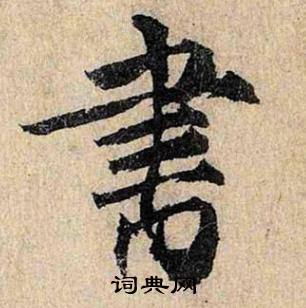 書
词典网